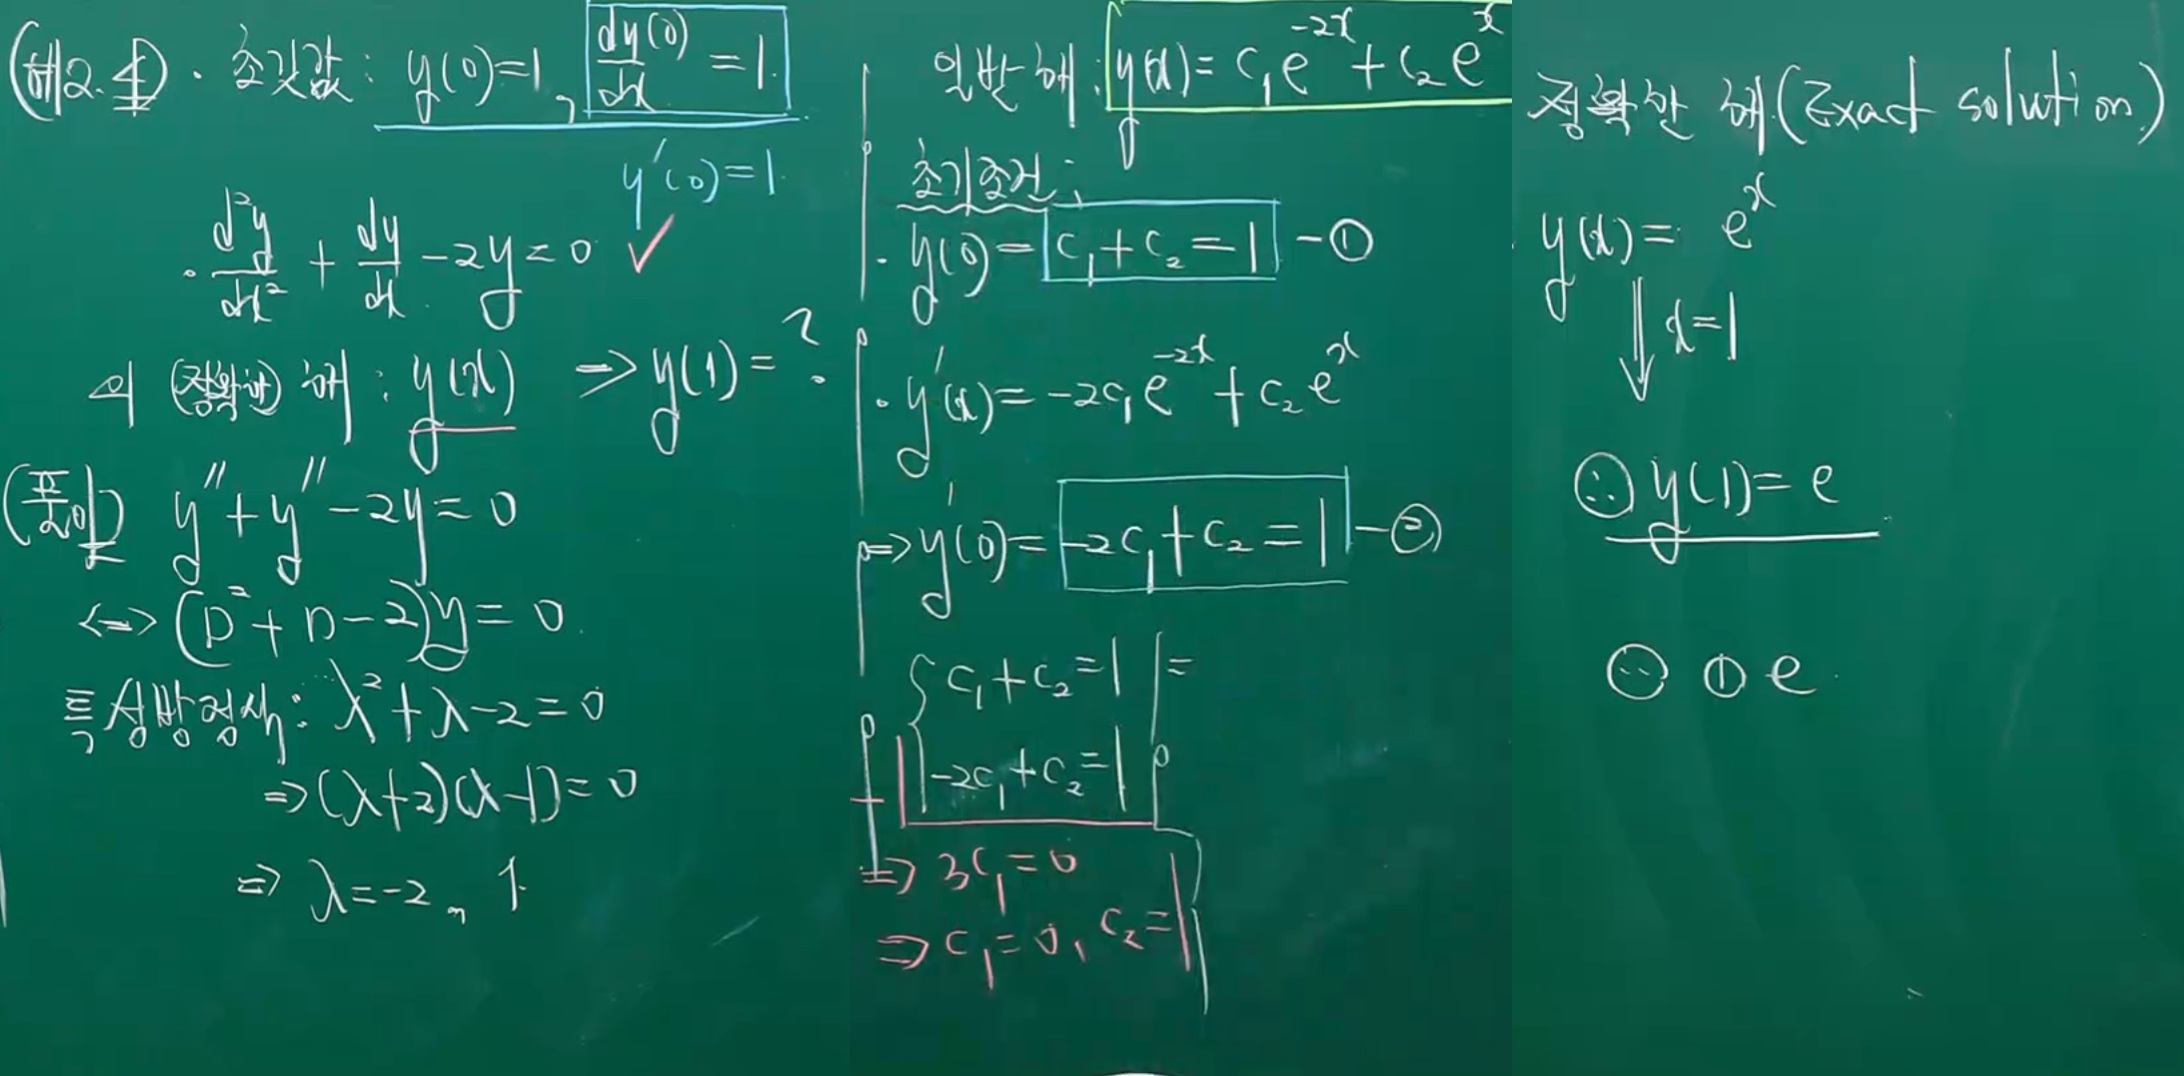 (예2.4) · 초깃값 : y(0)=1, dy(0)/dx = 1.
y'(0)=1.
· d²y/dx² + dy/dx - 2y = 0 ✓
의 (정확한) 해 : y(x) ⇒ y(1) = ?
(풀이) y'' + y'' - 2y = 0
<=> (D² + D - 2)y = 0.
특성방정식 : λ² + λ - 2 = 0
⇒ (λ+2)(λ-1) = 0
⇒ λ = -2, 1.
일반해 : y(x) = c₁e^{-2x} + c₂e^{x}
초기조건 ;
· y(0) = c₁ + c₂ = 1 - ①
· y'(x) = -2c₁e^{-2x} + c₂e^{x}
⇒ y'(0) = -2c₁ + c₂ = 1 - ②
c₁ + c₂ = 1 =
-2c₁ + c₂ = 1
⇒ 3c₁ = 0
⇒ c₁ = 0, c₂ = 1
정확한 해 (Exact solution)
y(x) = e^{x}
⇓ x=1
∴ y(1) = e
∴ ① e.